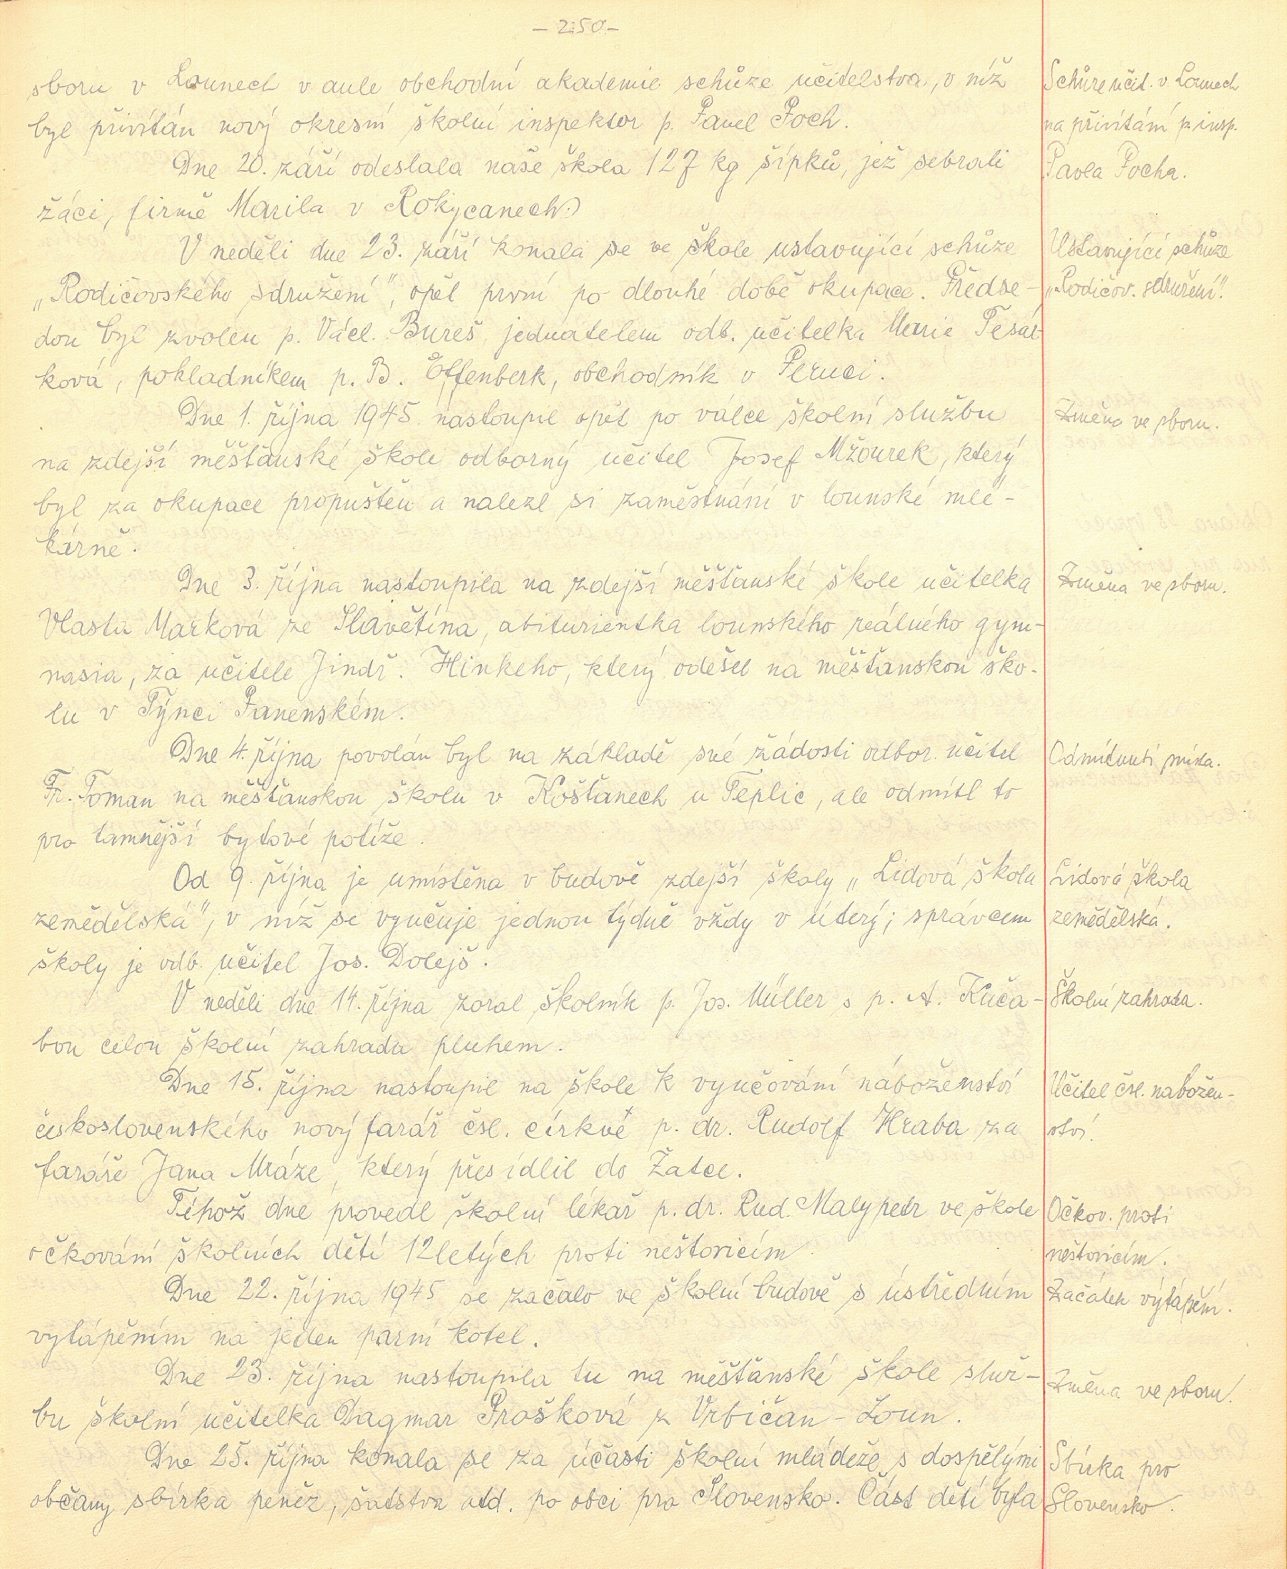 – 250 –
sboru v Lounech v aule obchodní akademie schůze učitelstva, v níž
byl přivítán nový okresní školní inspektor p. Pavel Poch.
Dne 20. září odeslala naše škola 127 kg šípků, jež sebrali
žáci, firmě Marila v Rokycanech.
V neděli dne 23. září konala se ve škole ustavující schůze
„Rodičovského sdružení", opět první po dlouhé době okupace. Předse-
dou byl zvolen p. Václ. Bureš jednatelem odb. učitelka Marie Tesař-
ková, pokladníkem p. B. Effenberk, obchodník v Peruci.
Dne 1. října 1945 nastoupil opět po válce školní službu
na zdejší měšťanské škole odborný učitel Josef Mžourek, který
byl za okupace propuštěn a nalezl si zaměstnání v lounské mlé-
kárně.
Dne 3. října nastoupila na zdejší měšťanské škole učitelka
Vlasta Marková ze Slavětína, abiturientka lounského reálného gym-
nasia, za učitele Jindř. Hinkeho, který odešel na měšťanskou ško-
lu v Týnci Panenském.
Dne 4. října povolán byl na základě své žádosti odbor. učitel
Fr. Toman na měšťanskou školu v Košťanech u Teplic, ale odmítl to
pro tamnější bytové potíže.
Od 9. října je umístěna v budově zdejší školy „Lidová škola
zemědělská", v níž se vyučuje jednou týdně vždy v úterý; správcem
školy je odb. učitel Jos. Dolejš.
V neděli dne 14. října zoral školník p. Jos. Müller s p. A. Kuča-
bou celou školní zahradu pluhem.
Dne 15. října nastoupil na škole k vyučování náboženství
československého nový farář čsl. církve p. dr. Rudolf Hraba za
faráře Jana Mráze, který přesídlil do Žatce.
Téhož dne provedl školní lékař p. dr. Rud. Malypetr ve škole
očkování školních dětí 12letých proti neštovicím.
Dne 22. října 1945 se začalo ve školní budově s ústředním
vytápěním na jeden parní kotel.
Dne 23. října nastoupila tu na měšťanské škole služ-
bu školní učitelka Dagmar Prošková z Vrbičan - Loun.
Dne 25. října konala se za účasti školní mládeže s dospělými
občany sbírka peněz, šatstva atd. po obci pro Slovensko. Část dětí byla
Schůze učit. v Lounech
na přivítání p. insp.
Pavla Pocha.
Ustavující schůze
„Rodičov. sdružení".
Změna ve sboru.
Změna ve sboru.
Odmítnutí místa.
Lidová škola
zemědělská.
Školní zahrada.
Učitel čsl. nabožen-
ství.
Očkov. proti
neštovicím.
Začátek vytápění.
Změna ve sboru.
Sbírka pro
Slovensko.